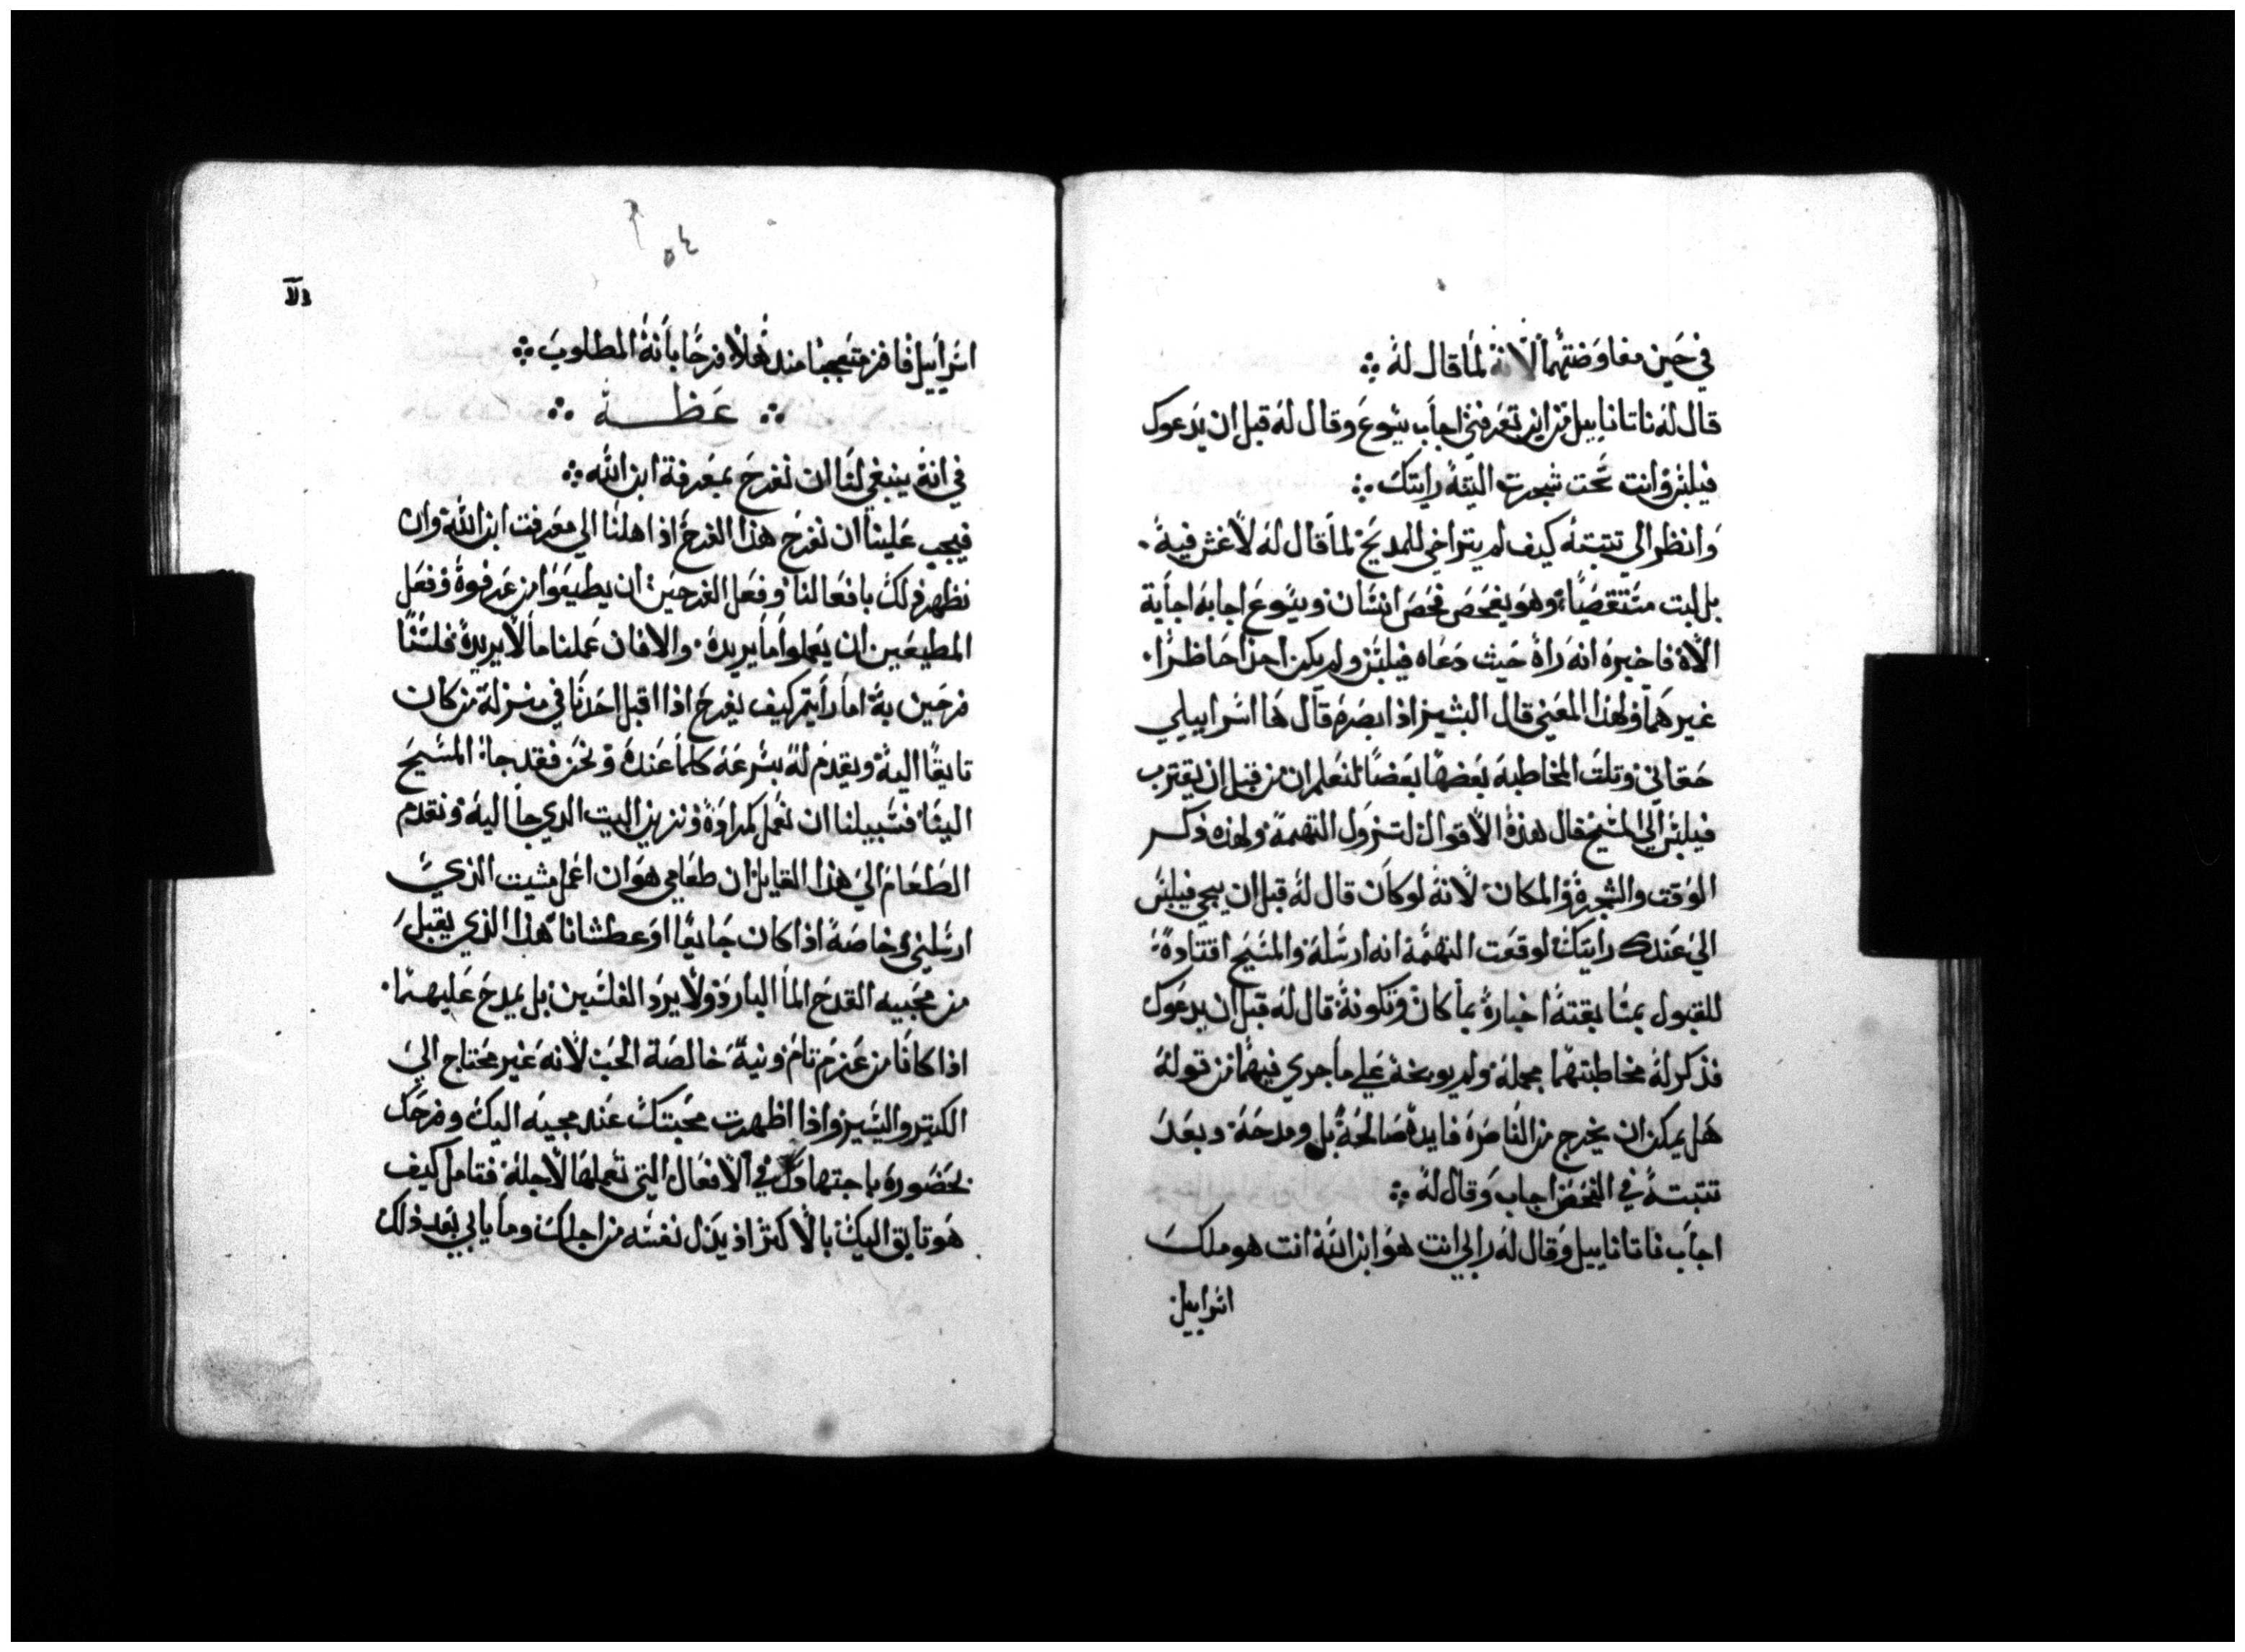 في حين مفاوضتهما لانه لما قال له
قال له ناتانابيل من اين تعرفني اجاب يسوع وقال له قبل ان يدعوك
فيلبس وانت تحت شجرت التينه رايتك
وانظر الي تتبته كيف لم يتراخي للمديح لما قال له لا غش فيه
بل لبت مستقصيا وهو يفحص فحص انسان ويسوع اجابه اجابة
الاه فاخبره انه راه حيث دعاه فيلبس ولم يكن احدا حاظرا
غيرهما ولهذا المعني قال البشير اذ ابصره قال ها اسراييلي
حقاني وتلت المخاطبه بعضها بعضا لنعلم ان من قبل ان يقترب
فيلبس الي المسيح قال هذه الاقوال لتزول التهمة ولهذه ذكر
الوقت والشجرة والمكان لانه لو كان قال له قبل ان يجي فيلبس
الي عندك رايتك لوقعت التهمة انه ارسله والمسيح اقتاده
للقبول بمسابقته اخباره بما كان وتكونه قال له قبل ان يدعوك
فذكر له مخاطبتهما مجمله ولم يوبخه علي ما جري فيهما من قوله
هل يمكن ان يخرج من الناصره فايدة صالحة بل ومدحه وبعد
تتبته في الفحص اجاب وقال له
اجاب ناتانابيل وقال له رابي انت هو ابن الله انت هو ملك
اسراييل
٥٤
اسراييل فافز متعجبا مندهلا فرحا بانه المطلوب
عظــه
في انه ينبغي لنا ان نفرح بمعرفة ابن الله
فيجب علينا ان نفرح هذا الفرح اذ اهلنا الي معرفت ابن الله وان
نظهر ذلك بافعالنا وفعل الفرحين ان يطيعوا من عرفوه وفعل
المطيعين ان يعملوا ما يريده والا فان عملنا ما لا يريده فلسنا
فرحين به اما رايتم كيف يفرح اذا اقبل احدنا في منزله من كان
تايقا اليه ويقدم له بسرعه كلما عنده ونحن فقد جا المسيح
الينا فسبيلنا ان نعمل كمراده ونزين البيت الدي جا اليه ونقدم
الطعام الي هذا القايل ان طعامي هو ان اعمل مشيت الذي
ارسلني وخاصة اذا كان جايعا او عطشانا هذا الذي يقبل
من محبيه القدح الما البارد ولا يرد الفلسين بل يمدح عليهما
اذا كانا من عزم تام ونية خالصة الحب لانه غير محتاج الي
الكتير واليسير واذا اظهرت محبتك عند مجيه اليك وفرحك
بحضوره باجتهادك في الافعال التي تعملها لاجله فتامل كيف
هو تايق اليك بالاكثر اذ يبذل نفسه من اجلك وما يابي بعد ذلك